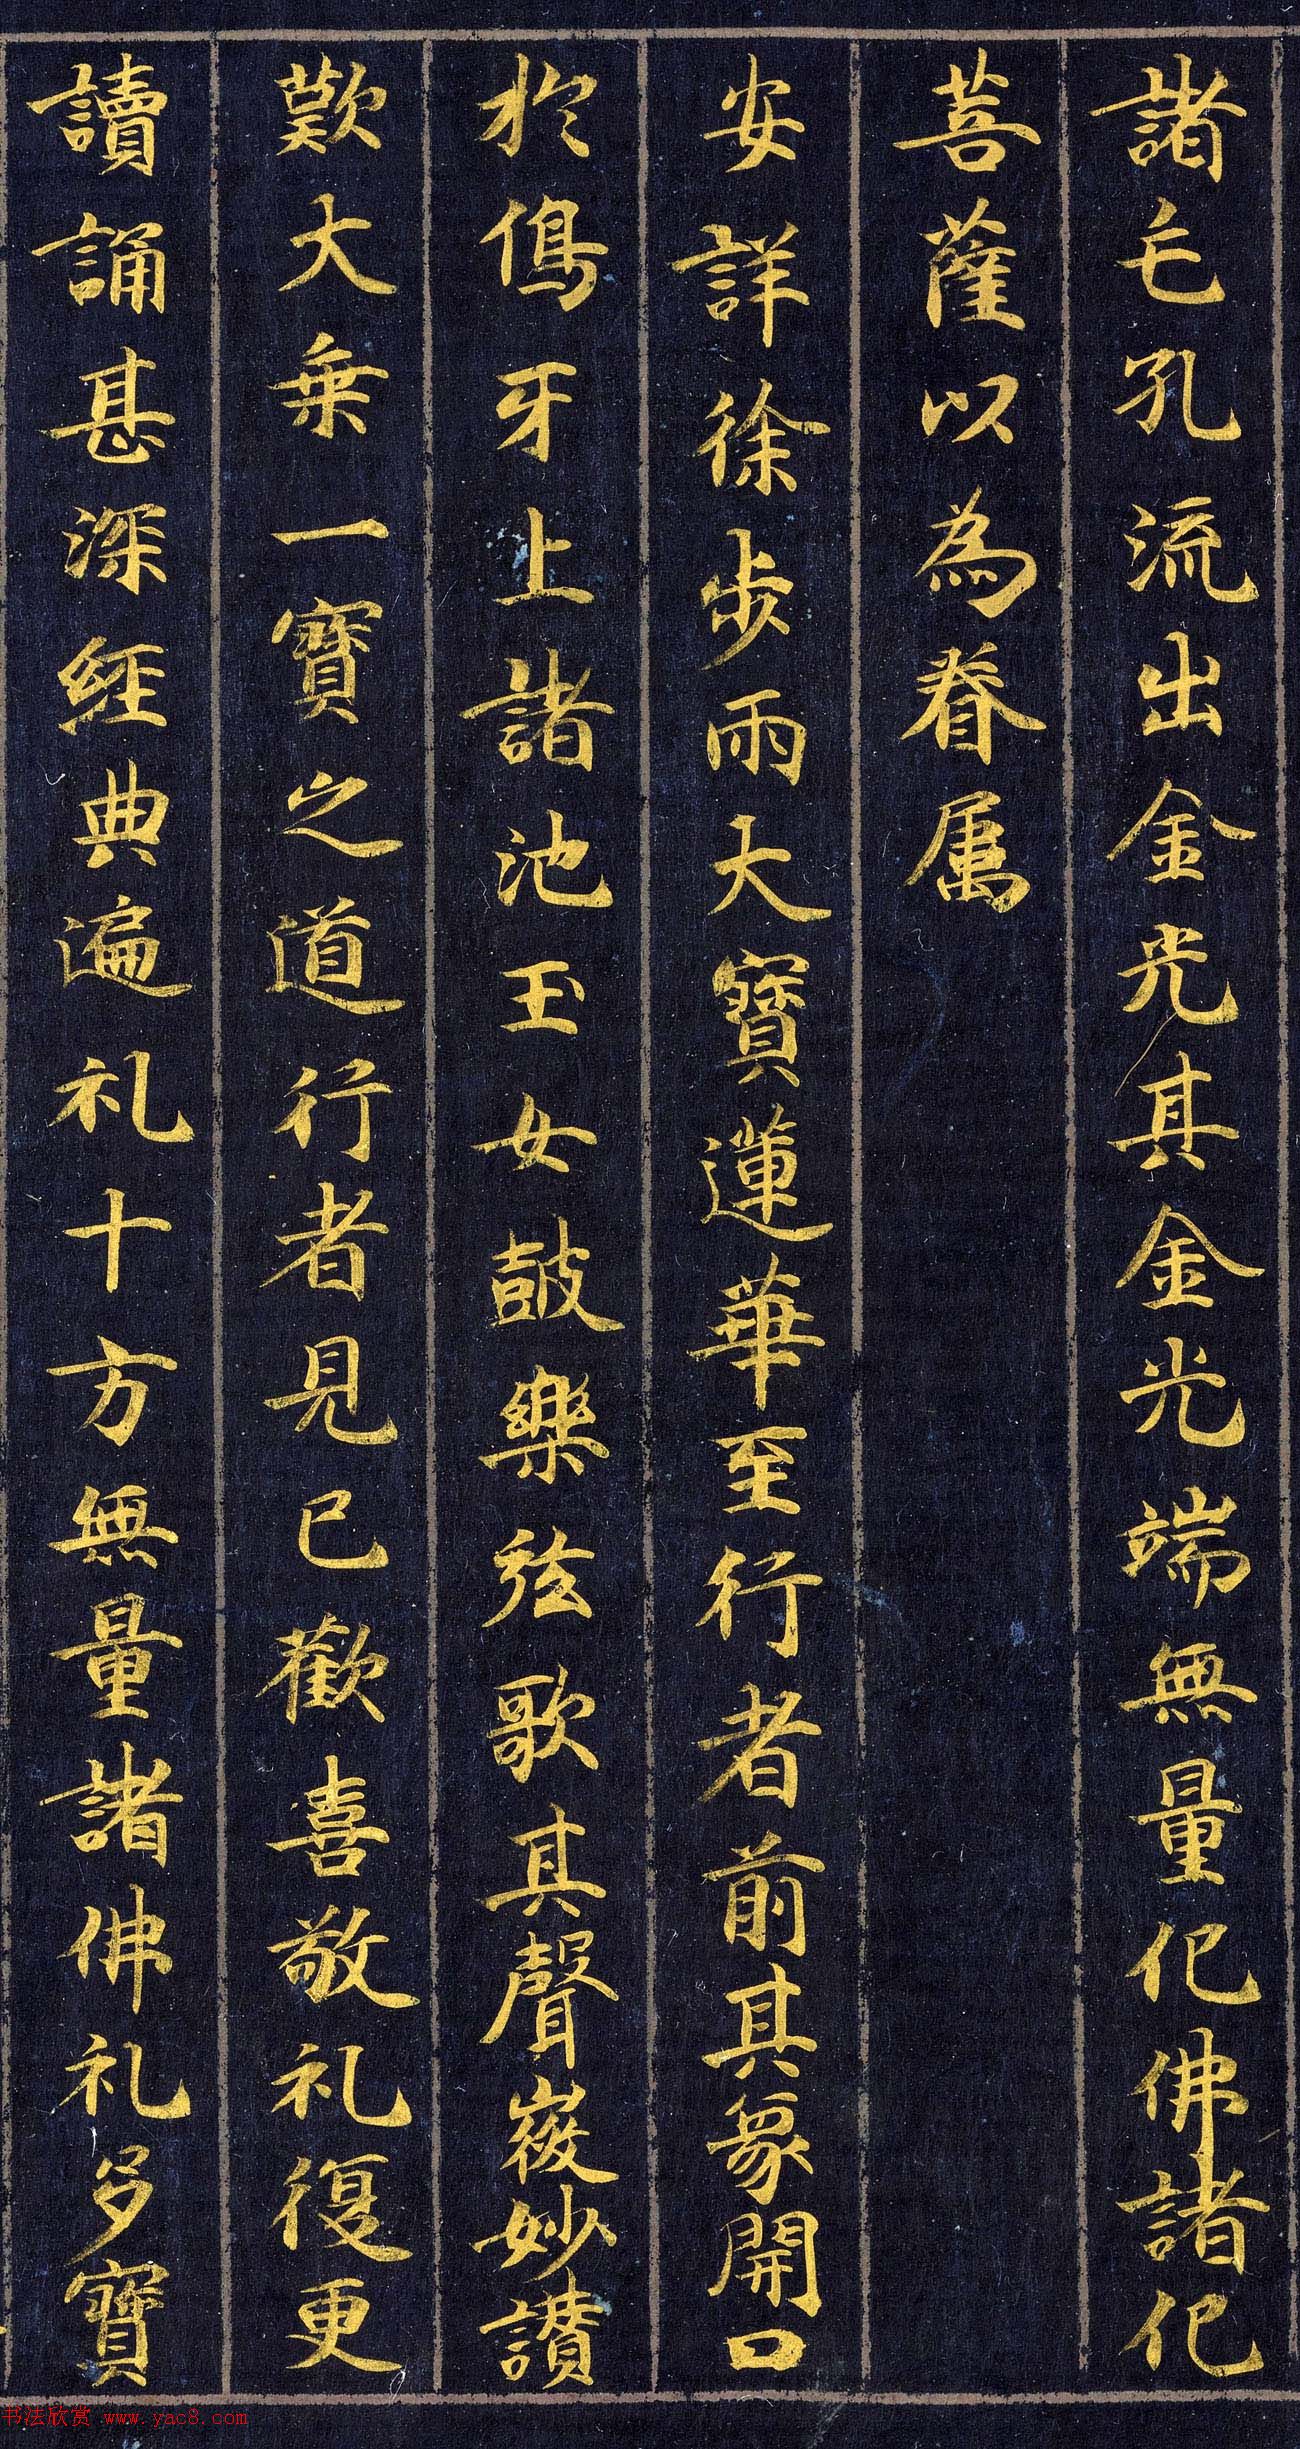 諸毛孔流出金光其金光端無量化佛諸化
菩薩以為眷属
安詳徐步雨大寶蓮華至行者前其象開口
於象牙上諸池玉女鼓樂弦歌其聲微妙讃
歎大乗一寶之道行者見已歡喜敬礼復更
讀誦甚深經典遍礼十方無量諸佛礼多寶
书法欣赏 www.yac8.com